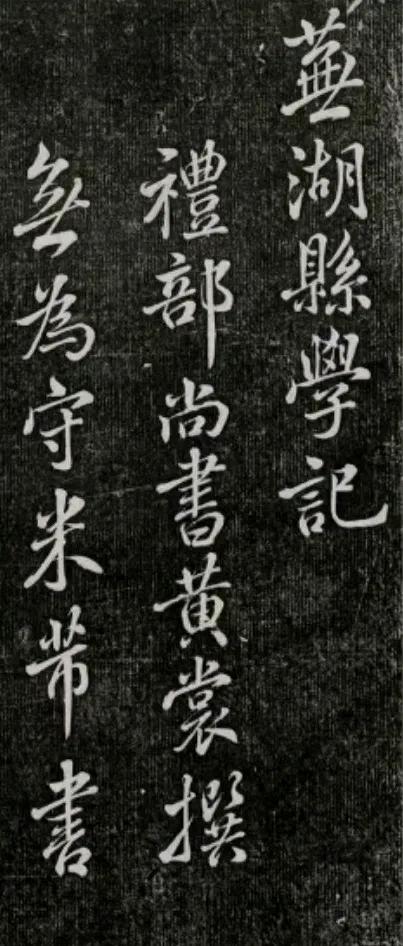 蕪湖縣學記
禮部尚書黃裳撰
無為守米芾書